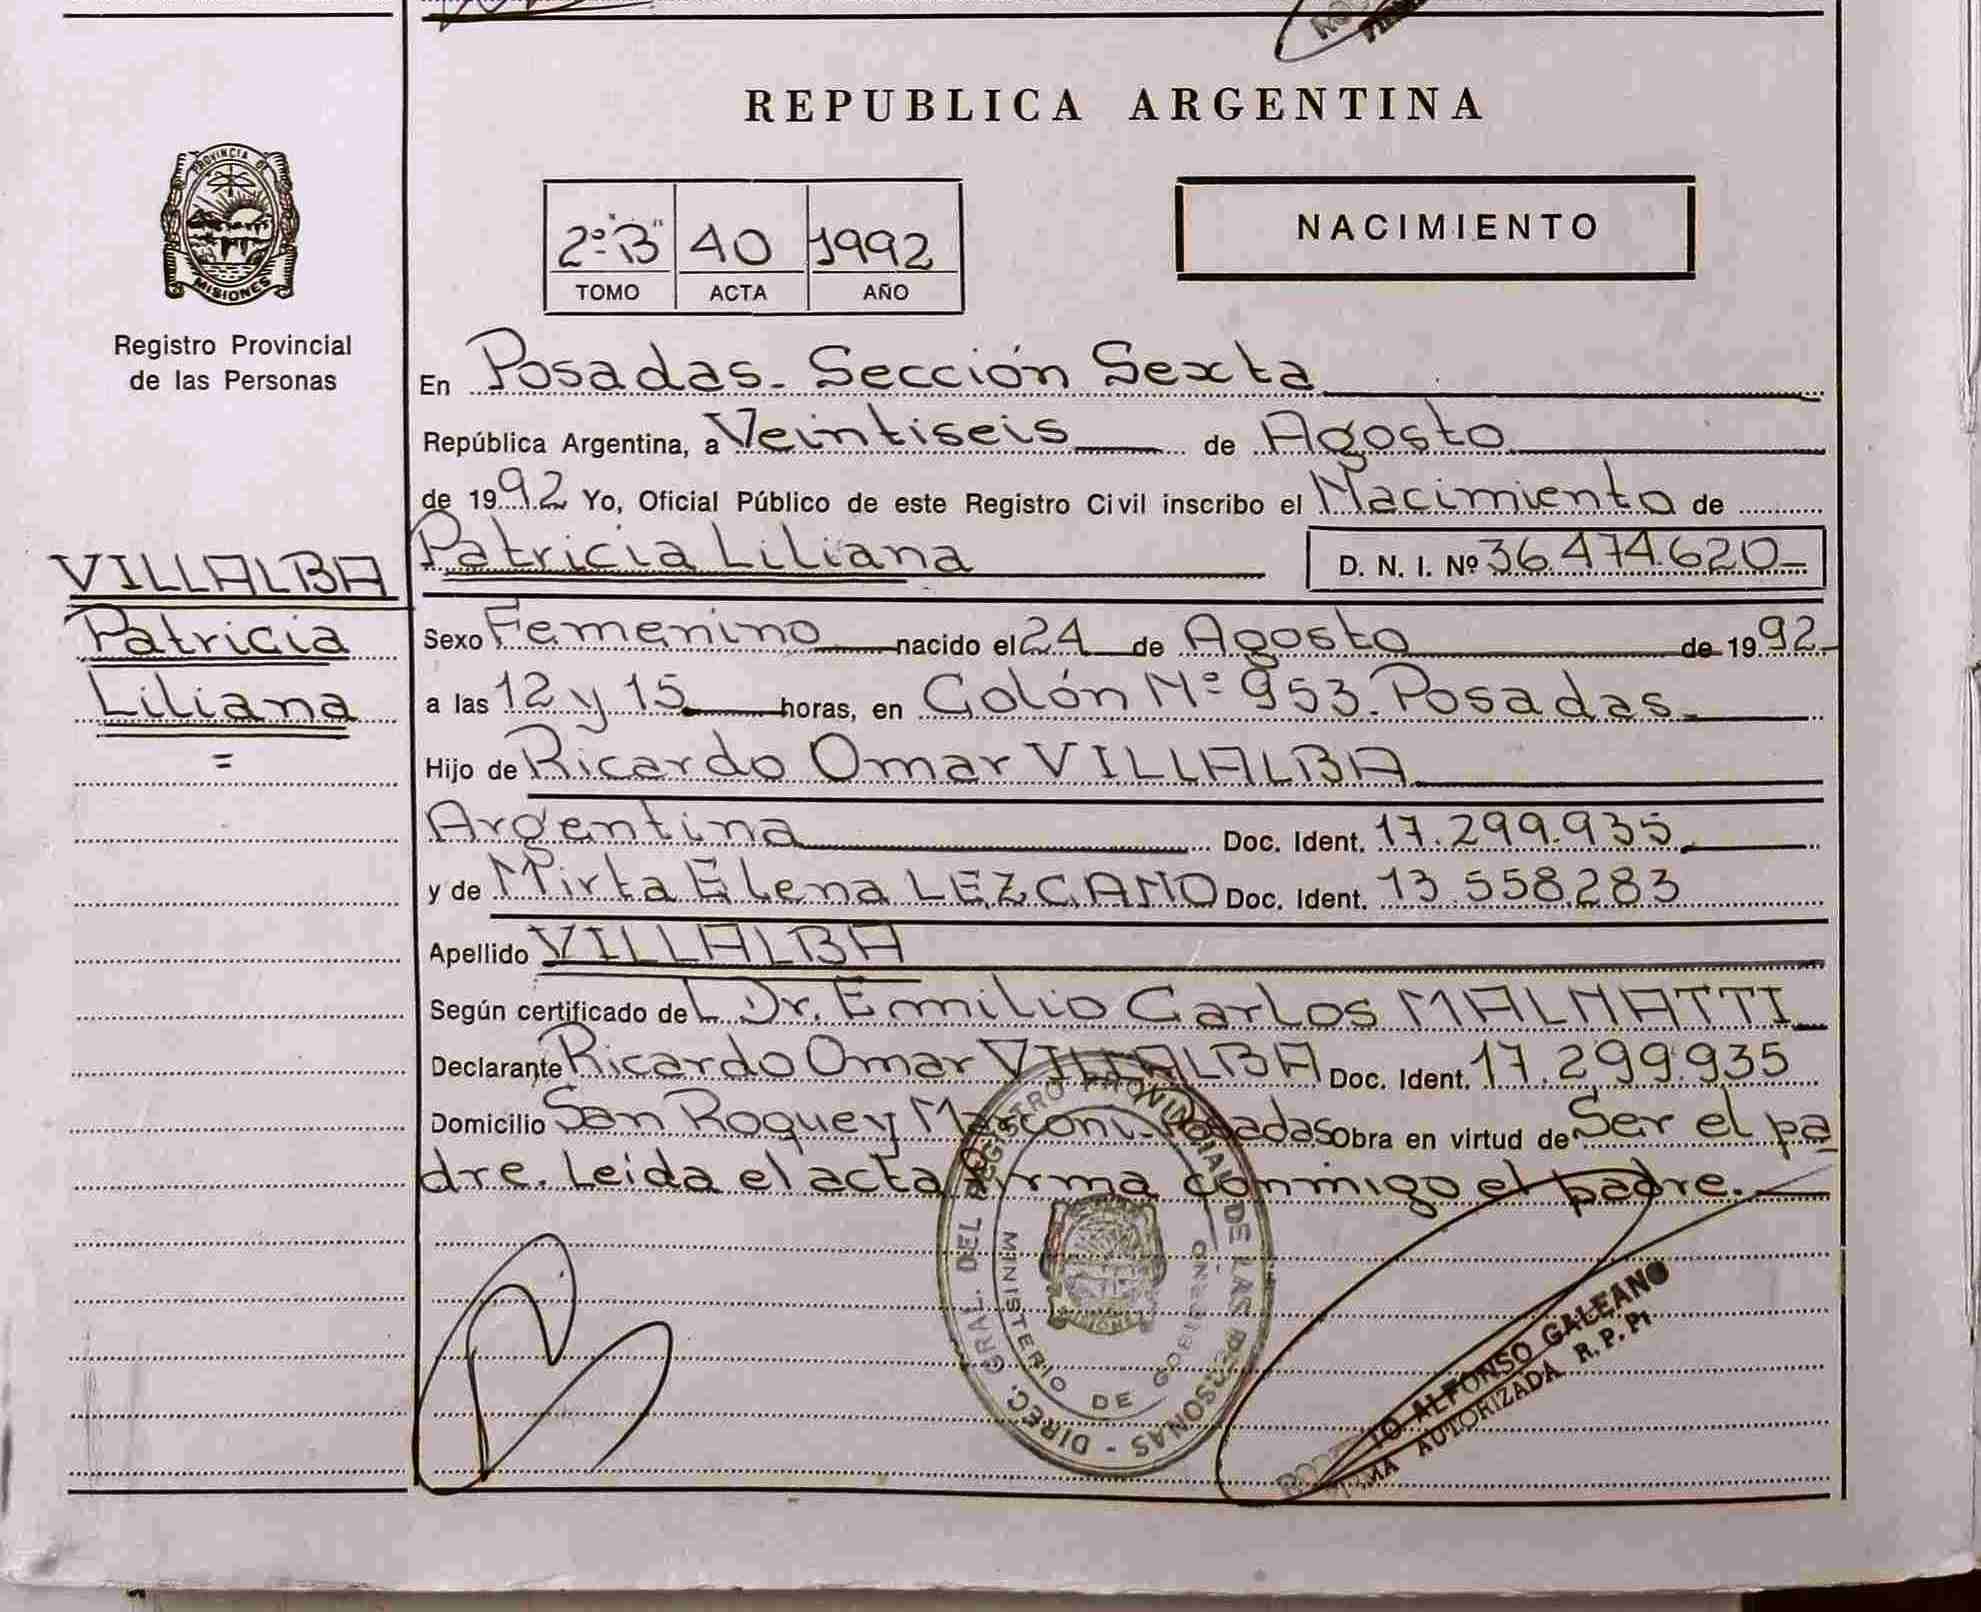 REPUBLICA ARGENTINA
PROVINCIA DE
MISIONES
Registro Provincial
de las Personas
2º "B" 40 1992
TOMO ACTA AÑO
NACIMIENTO
En Posadas - Sección Sexta
República Argentina, a Veintiseis de Agosto
de 1992 Yo, Oficial Público de este Registro Civil inscribo el Nacimiento de
VILLALBA
Patricia
Liliana
=
Patricia Liliana D. N. I. Nº 36.474.620-
Sexo Femenino nacido el 24 de Agosto de 1992
a las 12 y 15 horas, en Colón Nº 953 - Posadas
Hijo de Ricardo Omar VILLALBA
Argentina Doc. Ident. 17.299.935
y de Mirta Elena LEZCANO Doc. Ident. 13.558.283
Apellido VILLALBA
Según certificado del Dr. Emilio Carlos MALNATTI
Declarante Ricardo Omar VILLALBA Doc. Ident. 17.299.935
Domicilio San Roque y Marconi - Posadas Obra en virtud de Ser el pa
dre. Leida el acta firma conmigo el padre.
DIREC. GRAL. DEL REGISTRO PROVINCIAL DE LAS PERSONAS -
MINISTERIO DE GOBIERNO
MISIONES
ALFONSO GALEANO
FIRMA AUTORIZADA R. P. P.